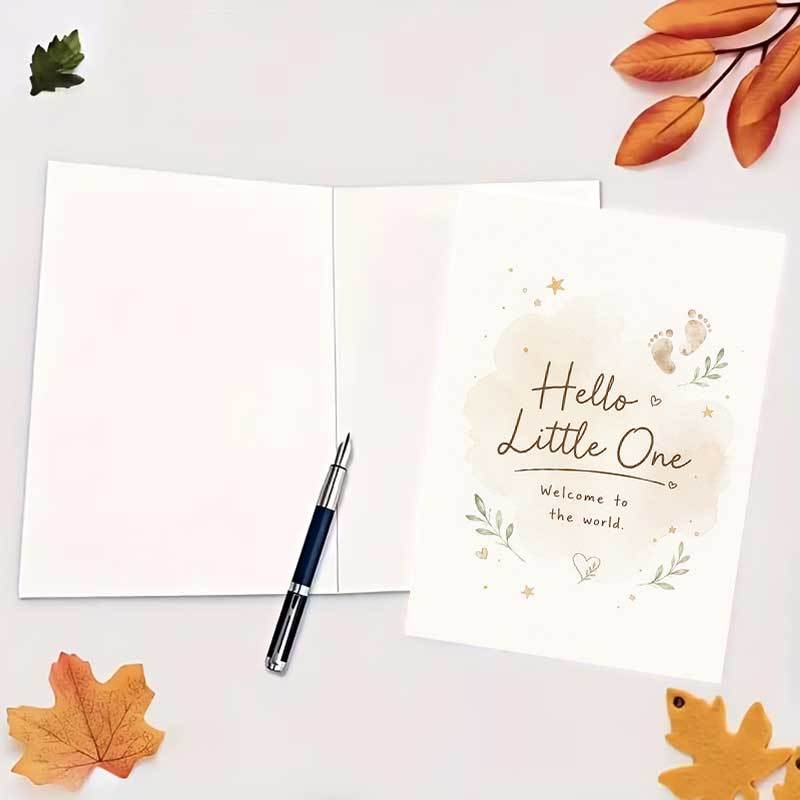 Hello
Little One
Welcome to
the world.